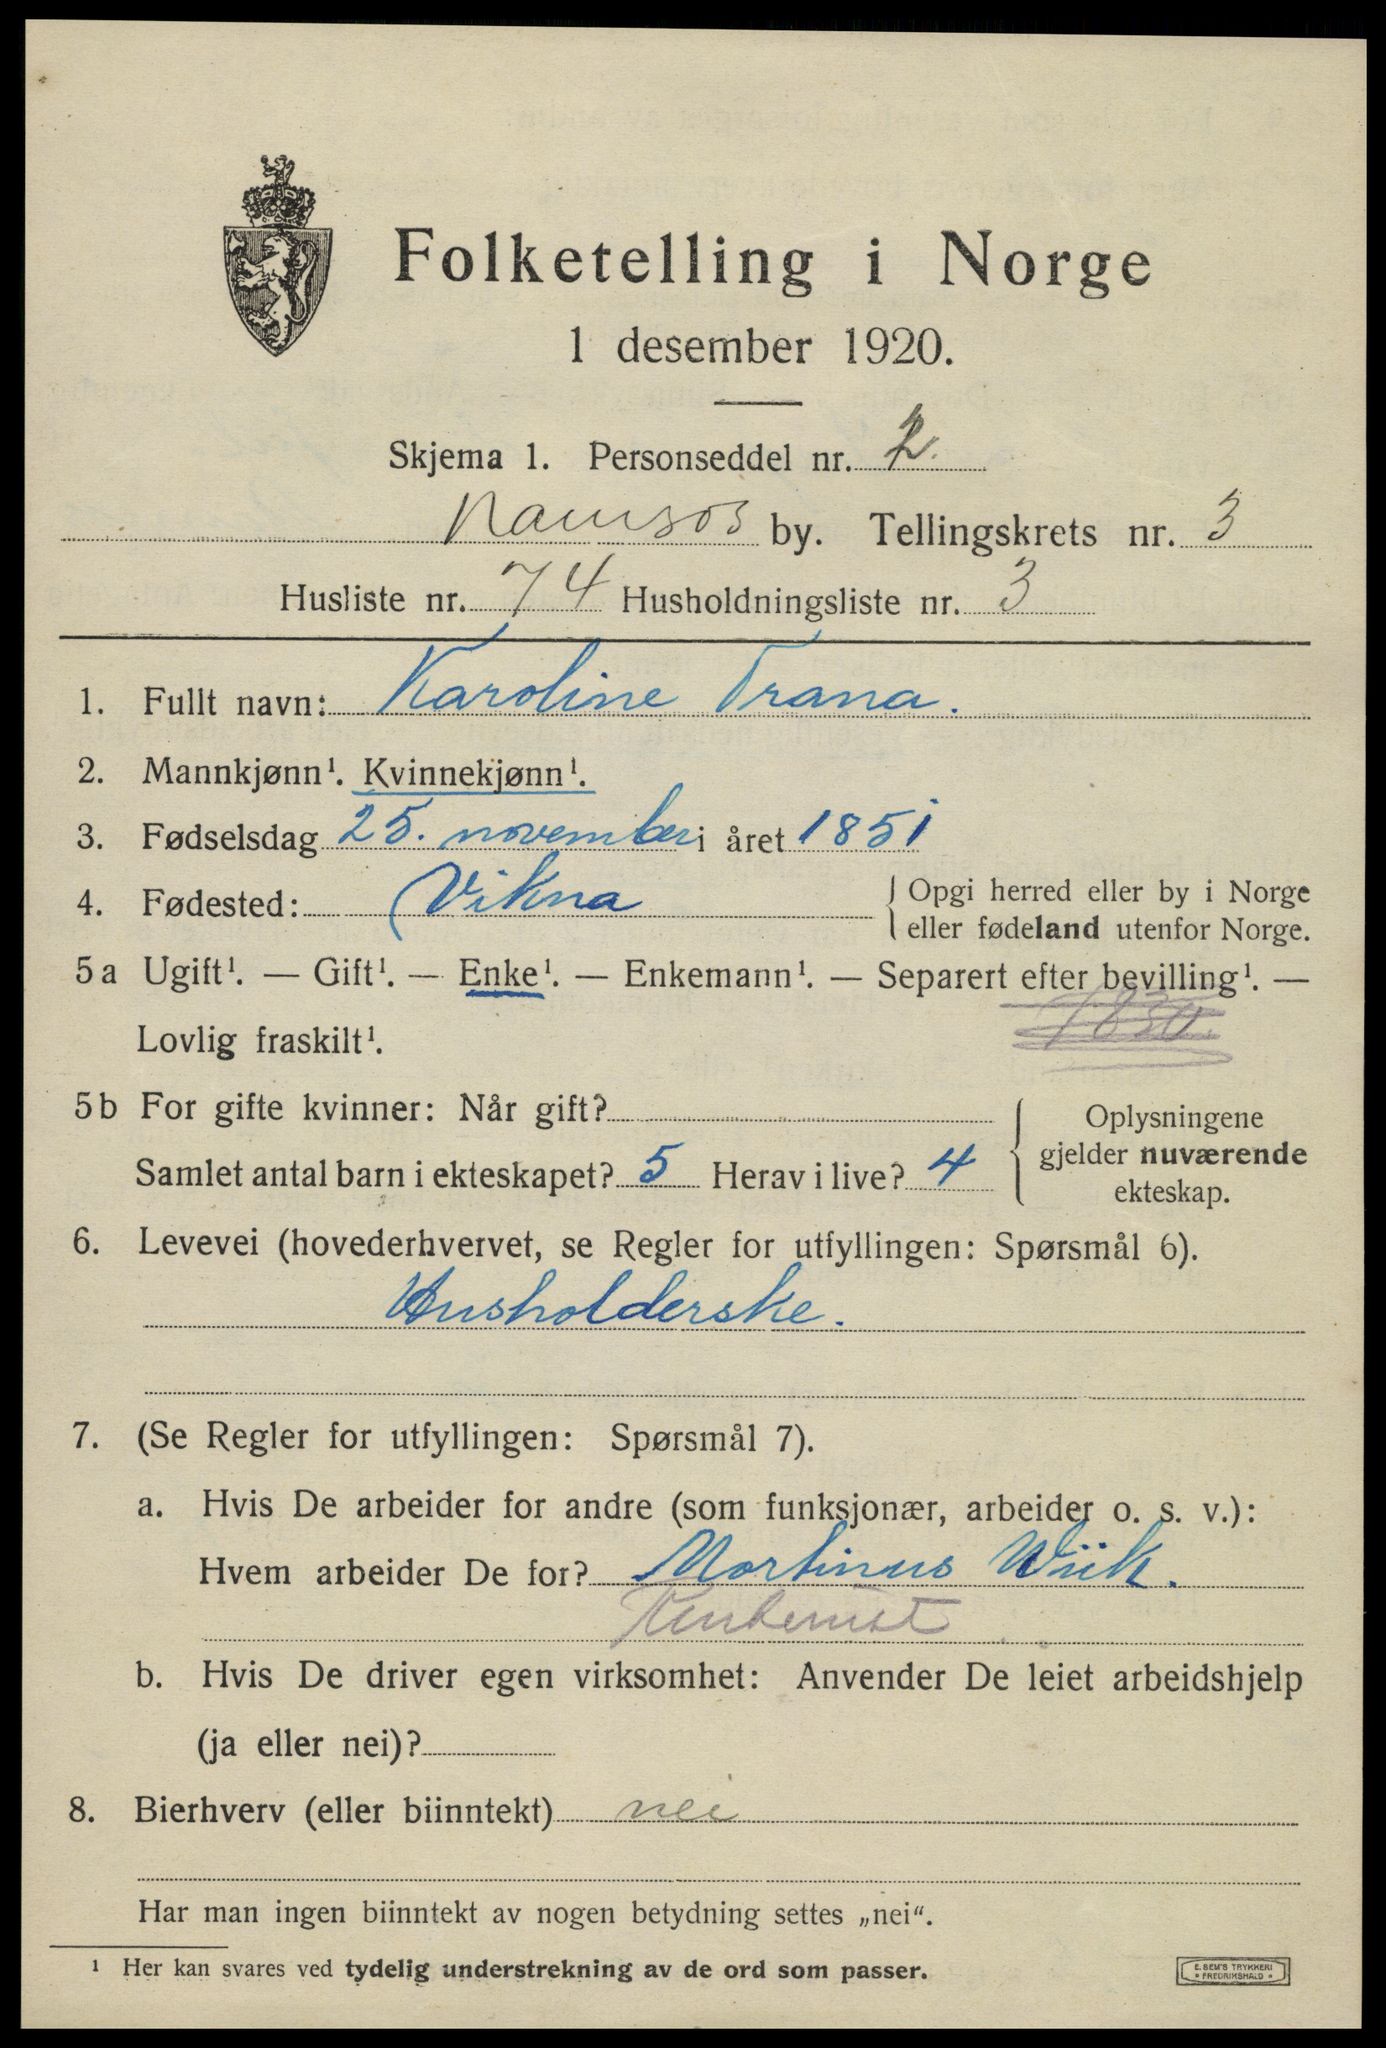 Folketelling i Norge
1 desember 1920.
Skjema 1. Personseddel nr. 2.
Namsos by. Tellingskrets nr. 3
Husliste nr. 74 Husholdningsliste nr. 3
1. Fullt navn: Karoline Trana.
2. Mannkjønn¹. Kvinnekjønn¹.
3. Fødselsdag 25. november i året 1851
4. Fødested: Vikna { Opgi herred eller by i Norge
eller fødeland utenfor Norge.
5a Ugift¹. — Gift¹. — Enke¹. — Enkemann¹. — Separert efter bevilling¹. —
Lovlig fraskilt¹.
5b For gifte kvinner: Når gift?
Samlet antal barn i ekteskapet? 5 Herav i live? 4
{ Oplysningene
gjelder nuværende
ekteskap.
6. Levevei (hovederhvervet, se Regler for utfyllingen: Spørsmål 6).
Husholderske.
7. (Se Regler for utfyllingen: Spørsmål 7).
a. Hvis De arbeider for andre (som funksjonær, arbeider o. s. v.):
Hvem arbeider De for? Martinus Wiik.
b. Hvis De driver egen virksomhet: Anvender De leiet arbeidshjelp
(ja eller nei)?
8. Bierhverv (eller biinntekt) nei
Har man ingen biinntekt av nogen betydning settes „nei“.
¹ Her kan svares ved tydelig understrekning av de ord som passer.
E. SEM'S TRYKKERI
* FREDRIKSHALD *